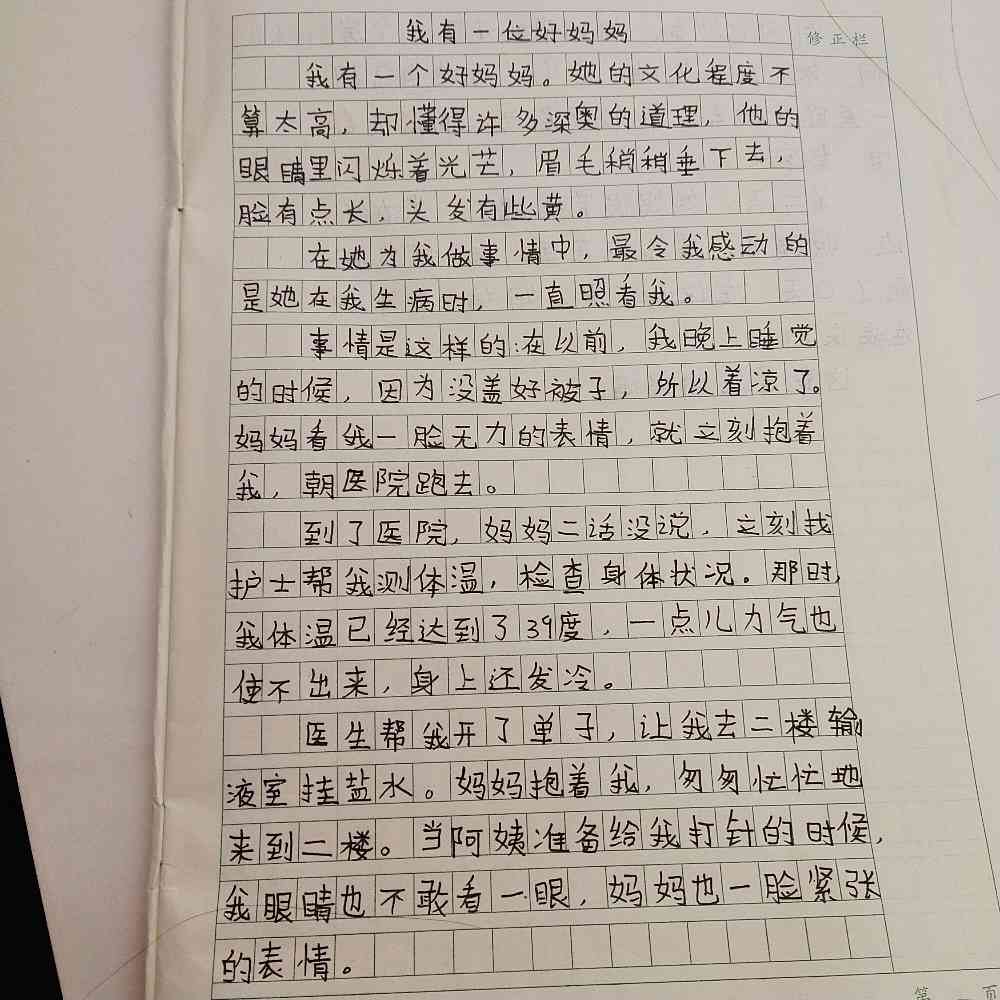 我有一位好妈妈
修正栏
我有一个好妈妈。她的文化程度不
算太高，却懂得许多深奥的道理，他的
眼睛里闪烁着光芒，眉毛稍稍垂下去，
脸有点长，头发有些黄。
在她为我做事情中，最令我感动的
是她在我生病时，一直照看我。
事情是这样的：在以前，我晚上睡觉
的时候，因为没盖好被子，所以着凉了。
妈妈看我一脸无力的表情，就立刻抱着
我，朝医院跑去。
到了医院，妈妈二话没说，立刻找
护士帮我测体温，检查身体状况。那时，
我体温已经达到了39度，一点儿力气也
使不出来，身上还发冷。
医生帮我开了单子，让我去二楼输
液室挂盐水。妈妈抱着我，匆匆忙忙地
来到二楼。当阿姨准备给我打针的时候，
我眼睛也不敢看一眼，妈妈也一脸紧张
的表情。
第 页